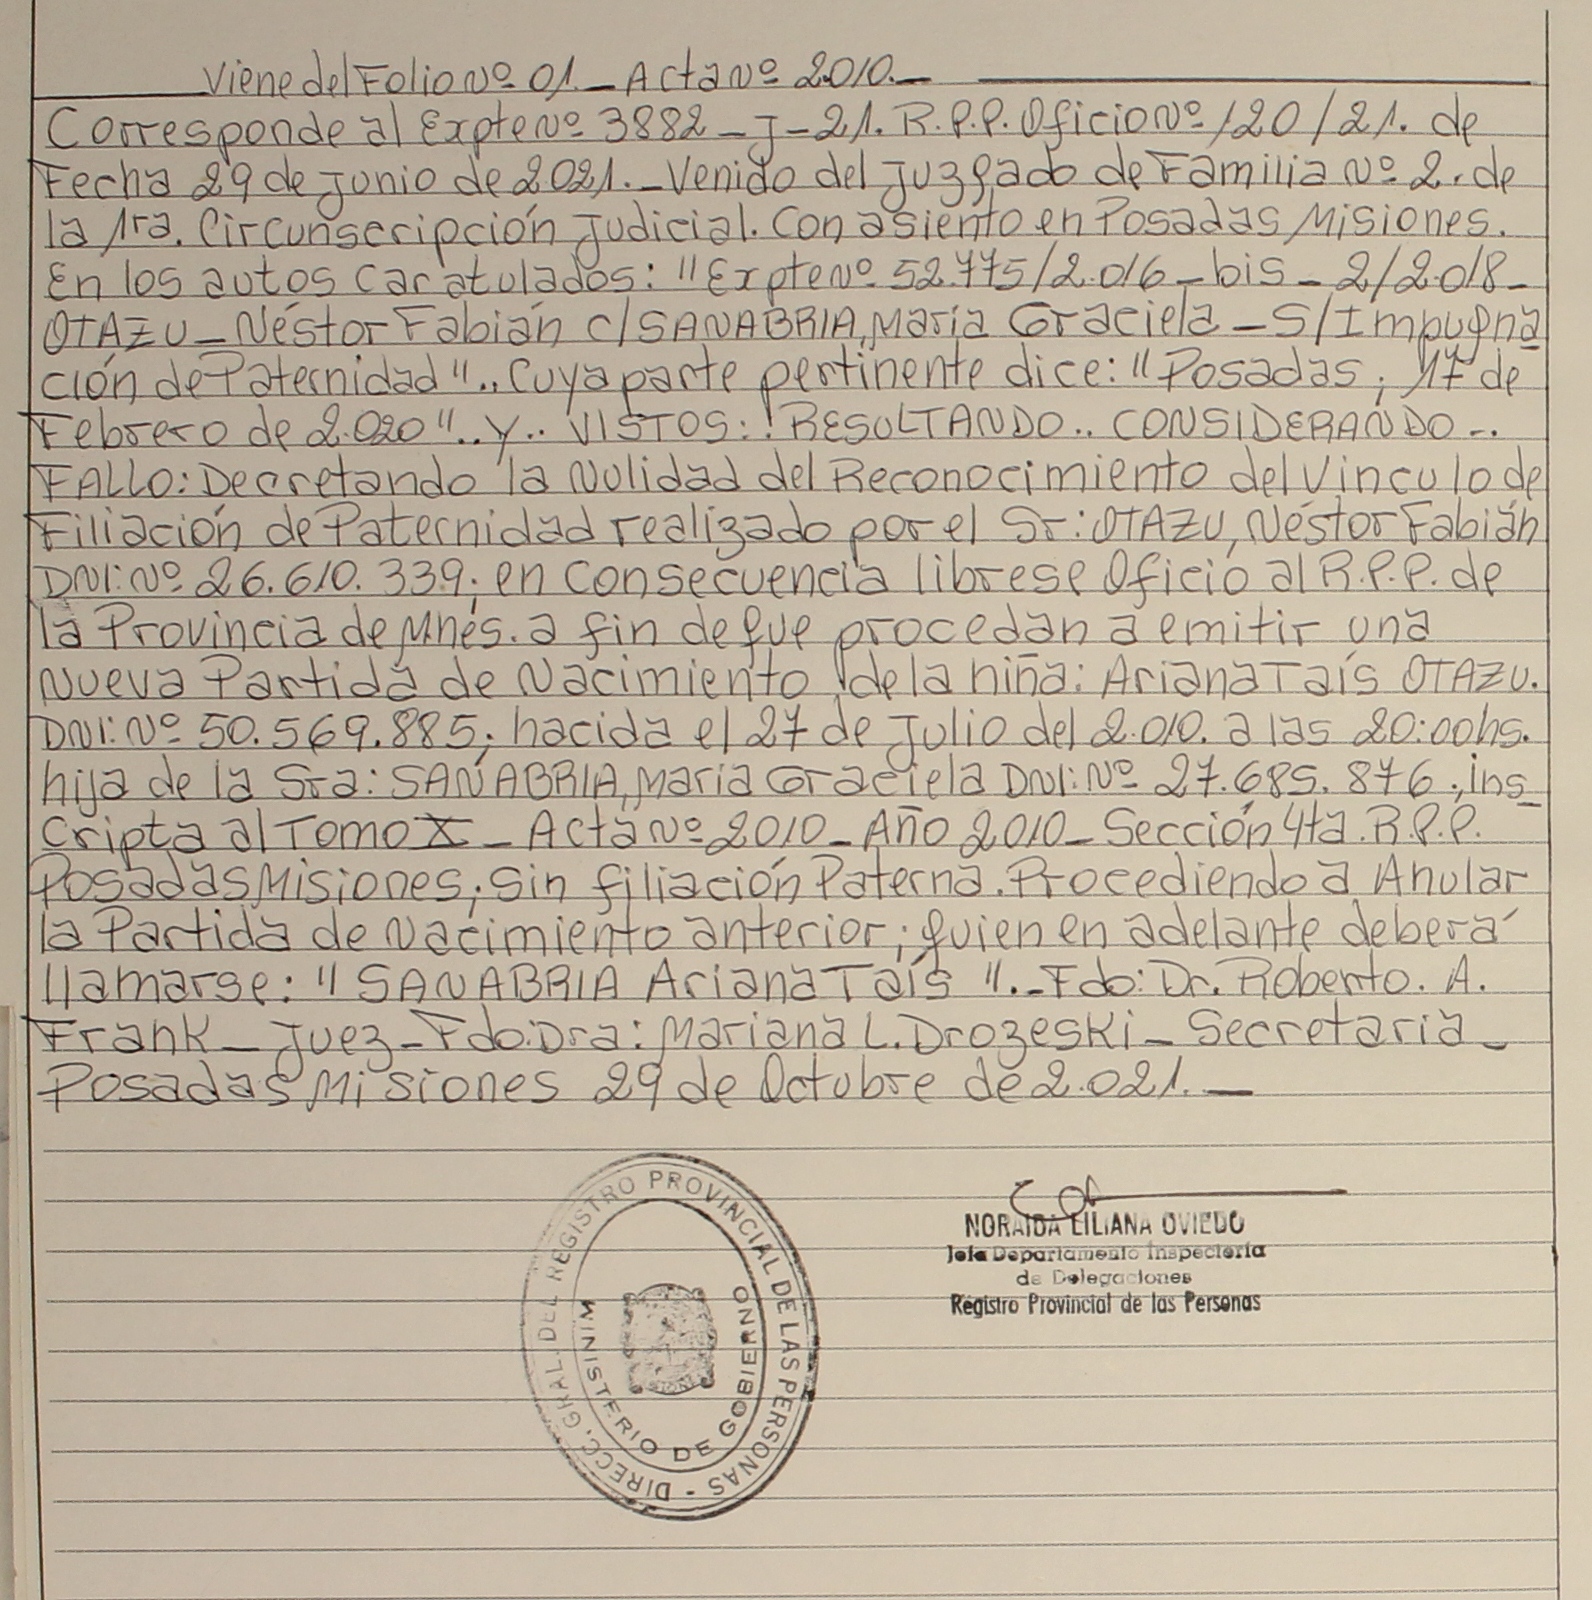 Viene del Folio Nº 01._ Acta Nº 2.010._
Corresponde al Expte Nº 3882_J_21. R.P.P. Oficio Nº 120/21. de
Fecha 29 de Junio de 2021._ Venido del Juzgado de Familia Nº 2. de
la 1ra. Circunscripción Judicial. Con asiento en Posadas Misiones.
En los autos caratulados: "Expte Nº 52.775/2.016_bis_2/2.018_
OTAZU_Néstor Fabián c/SANABRIA, María Graciela_S/Impugna
ción de Paternidad".. Cuya parte pertinente dice: "Posadas, 17 de
Febrero de 2.020".. y.. VISTOS: RESULTANDO.. CONSIDERANDO..
FALLO: Decretando la Nulidad del Reconocimiento del Vinculo de
Filiación de Paternidad realizado por el Sr: OTAZU, Néstor Fabián
DNI: Nº 26.610.339; en consecuencia librese Oficio al R.P.P. de
la Provincia de Mnes. a fin de que procedan a emitir una
Nueva Partida de Nacimiento de la niña: Ariana Taís OTAZU.
DNI: Nº 50.569.885; nacida el 27 de Julio del 2.010. a las 20:00hs.
hija de la Sra: SANABRIA, María Graciela DNI: Nº 27.685.876; ins_
cripta al Tomo X_ Acta Nº 2010_ Año 2010_ Sección 4ta. R.P.P.
Posadas Misiones; sin filiación Paterna. Procediendo a Anular
la Partida de Nacimiento anterior; quien en adelante deberá
llamarse: "SANABRIA Ariana Taís"._ Fdo: Dr. Roberto. A.
Frank_ Juez_ Fdo: Dra: Mariana L. Drozeski_ Secretaria_
Posadas Misiones 29 de Octubre de 2.021._
DIRECC. GRAL. DEL REGISTRO PROVINCIAL DE LAS PERSONAS -
MINISTERIO DE GOBIERNO
NORAIDA LILIANA OVIEDO
Jefa Departamento Inspectoría
de Delegaciones
Registro Provincial de las Personas